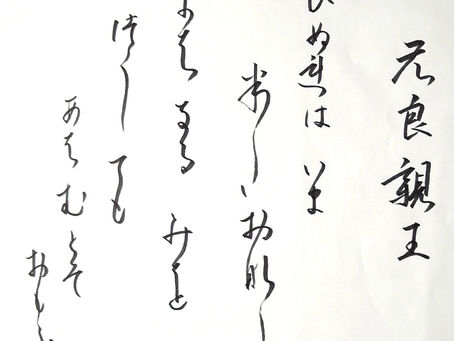 元良親王
ひぬれは いま
おなし
は なる みを
つくし ても
あはむ とそ
おも